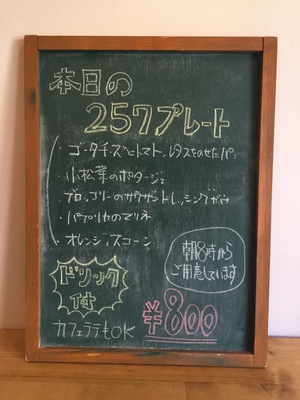 本日の
257プレート
・ゴーダチーズとトマト、レタスをのせたパン
・小松菜のポタージュ
・ブロッコリーのサウザンドレッシングがけ
・パプリカのマリネ
・オレンジスコーン
朝8時から
ご用意しています
ドリンク
付
カフェラテもOK
¥800